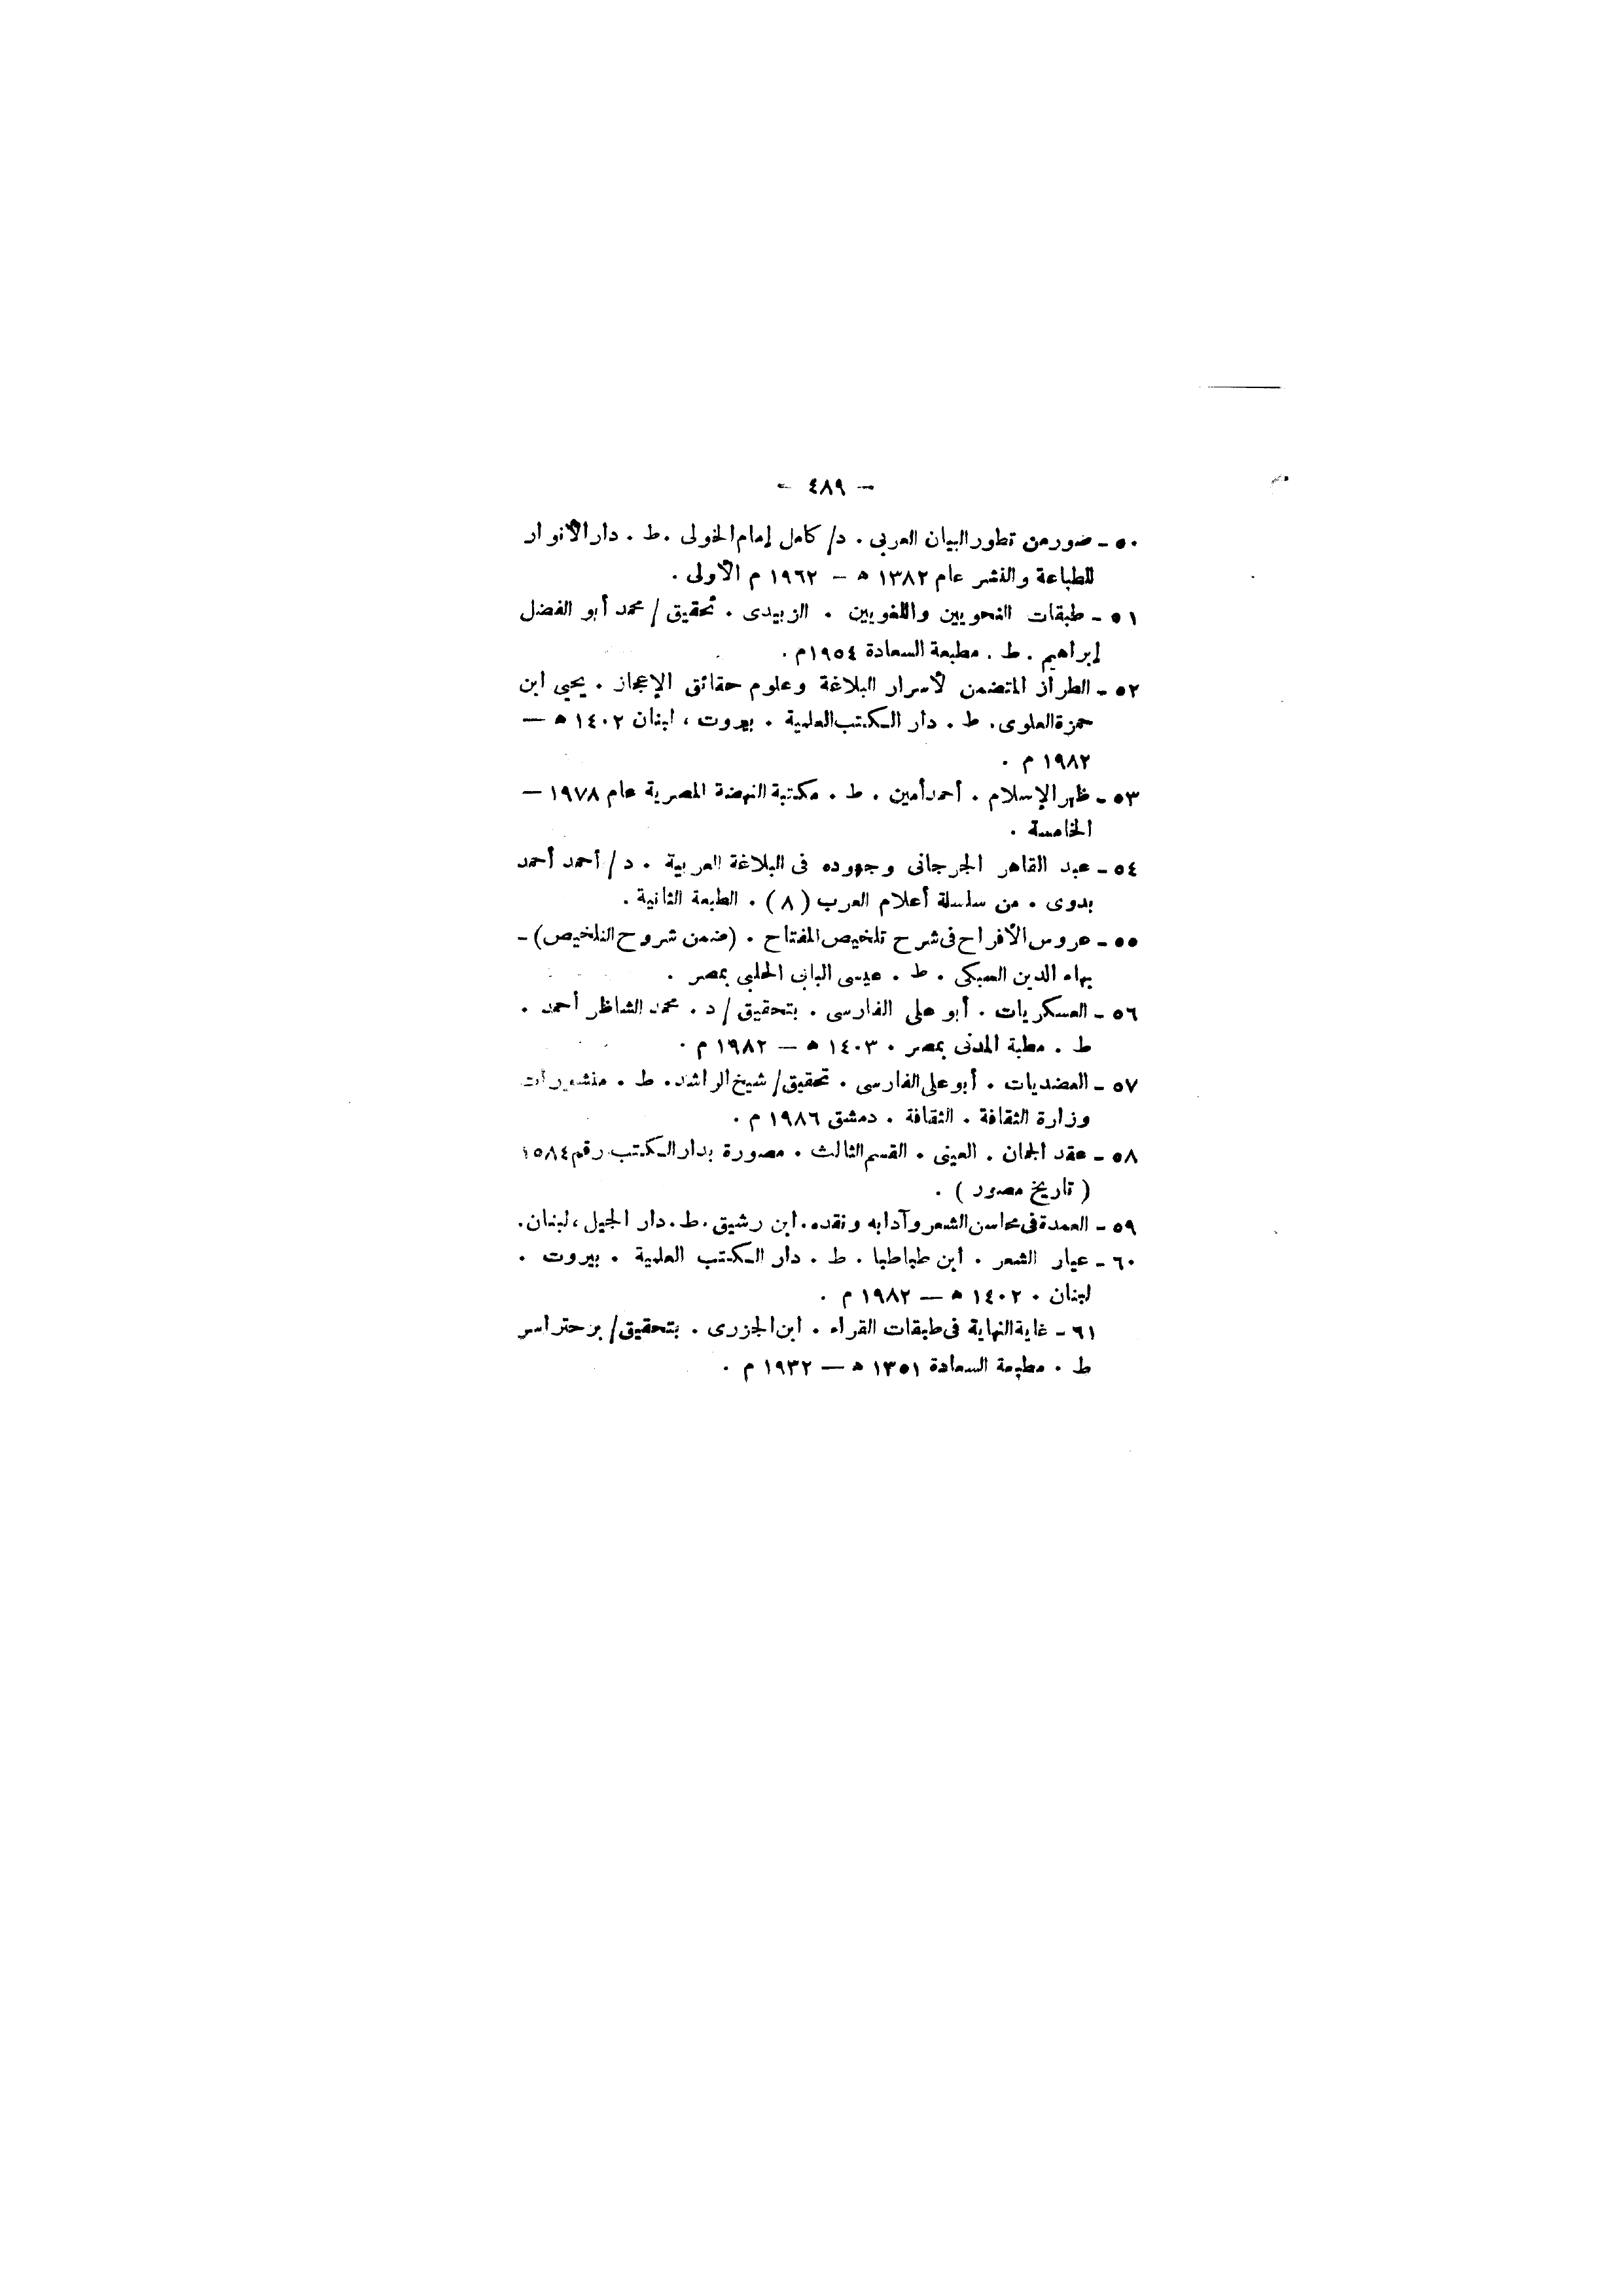 — ٤٨٩ —
٥٠ - صور من تطور البيان العربى . د/ كامل إمام الخولى . ط . دار الأنوار
للطباعة والنشر عام ١٣٨٢ هـ — ١٩٦٢ م الأولى .
٥١ - طبقات النحويين واللغويين . الزبيدى . تحقيق / محمد أبو الفضل
إبراهيم . ط . مطبعة السعادة ١٩٥٤م .
٥٢ - الطراز المتضمن لأسرار البلاغة وعلوم حقائق الإعجاز . يحيي ابن
حمزة العلوى . ط . دار الكتب العلمية . بيروت ، لبنان ١٤٠٢ هـ —
١٩٨٢ م .
٥٣ - ظهر الإسلام . أحمد أمين . ط . مكتبة النهضة المصرية عام ١٩٧٨ —
الخامسة .
٥٤ - عبد القاهر الجرجانى وجهوده فى البلاغة العربية . د / أحمد أحمد
بدوى . من سلسلة أعلام العرب ( ٨ ) . الطبعة الثانية .
٥٥ - عروس الأفراح فى شرح تلخيص المفتاح . (ضمن شروح التلخيص) -
بهاء الدين السبكى . ط . عيسى البابى الحلبى بمصر .
٥٦ - العسكريات . أبو على الفارسى . بتحقيق / د . محمد الشاظر أحمد .
ط . مطبة المدنى بمصر . ١٤٠٣ هـ — ١٩٨٢ م .
٥٧ - العضديات . أبو على الفارسى . تحقيق / شيخ الراشد . ط . منشورات
وزارة الثقافة . الثقافة . دمشق ١٩٨٦ م .
٥٨ - عقد الجمان . العينى . القسم الثالث . مصورة بدار الكتب رقم ١٥٨٤
( تاريخ مصور ) .
٥٩ - العمدة فى محاسن الشعر وآدابه ونقده . ابن رشيق . ط . دار الجيل ، لبنان .
٦٠ - عيار الشعر . ابن طباطبا . ط . دار الكتب العلمية . بيروت .
لبنان . ١٤٠٢ هـ — ١٩٨٢ م .
٦١ - غاية النهاية فى طبقات القراء . ابن الجزرى . بتحقيق / برجستراسر
ط . مطبعة السعادة ١٣٥١ هـ — ١٩٣٢ م .